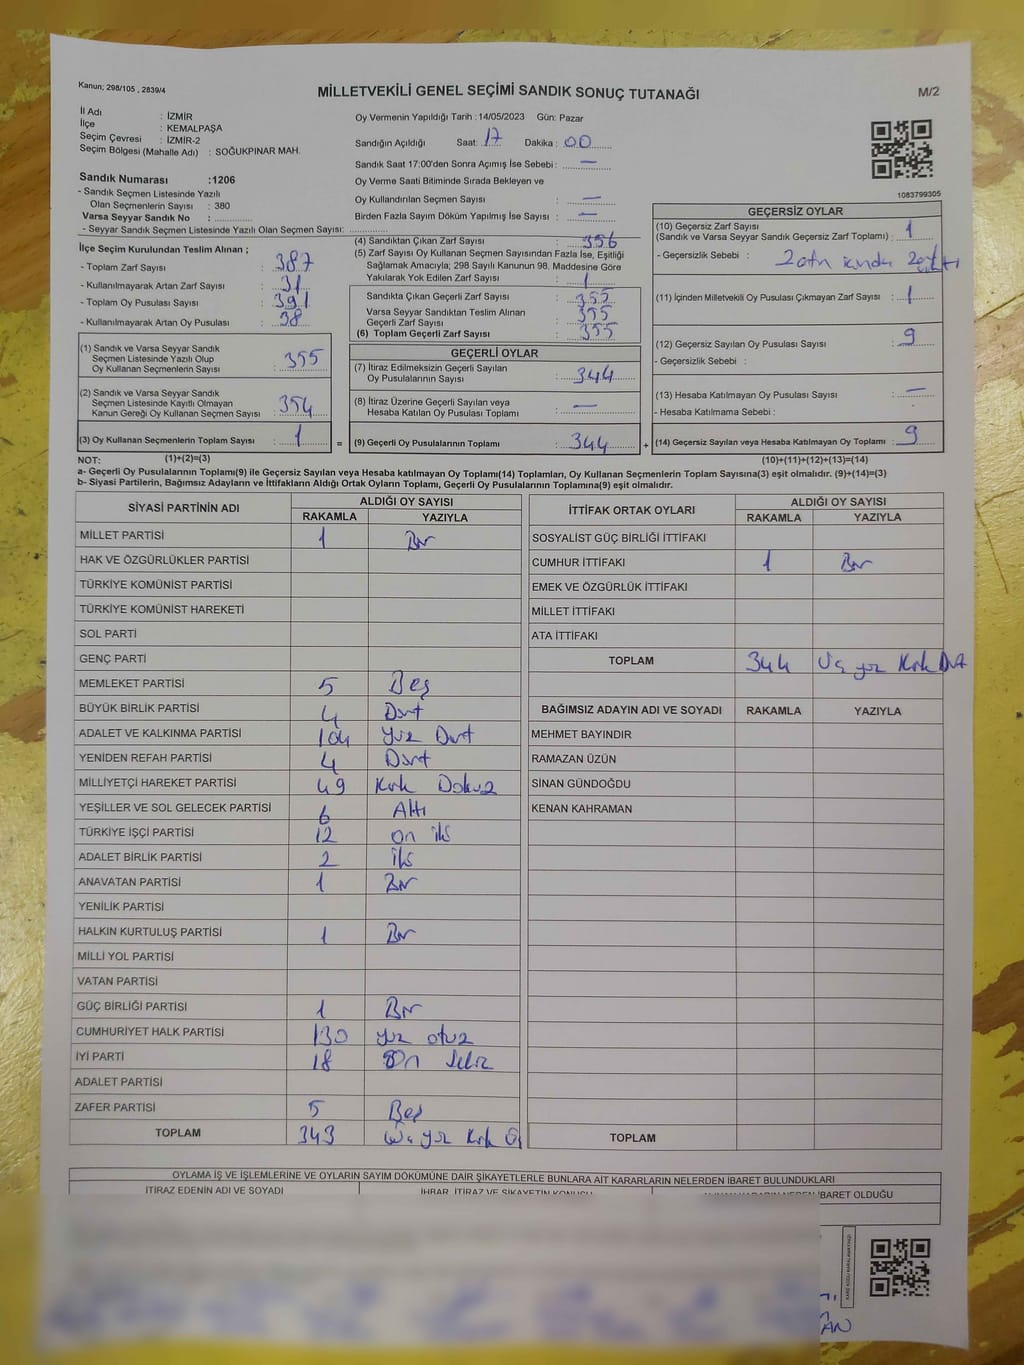 Kanun; 298/105 , 2839/4
MİLLETVEKİLİ GENEL SEÇİMİ SANDIK SONUÇ TUTANAĞI
M/2
İl Adı : İZMİR
İlçe : KEMALPAŞA
Seçim Çevresi : İZMİR-2
Seçim Bölgesi (Mahalle Adı) : SOĞUKPINAR MAH.
Oy Vermenin Yapıldığı Tarih :14/05/2023 Gün: Pazar
Sandığın Açıldığı Saat: 17 Dakika : 00
Sandık Saat 17:00'den Sonra Açımış İse Sebebi : —
Oy Verme Saati Bitiminde Sırada Bekleyen ve
Oy Kullandırılan Seçmen Sayısı : —
Birden Fazla Sayım Döküm Yapılmış İse Sayısı : —
1083799305
Sandık Numarası :1206
- Sandık Seçmen Listesinde Yazılı
Olan Seçmenlerin Sayısı : 380
Varsa Seyyar Sandık No :
- Seyyar Sandık Seçmen Listesinde Yazılı Olan Seçmen Sayısı:
İlçe Seçim Kurulundan Teslim Alınan ;
- Toplam Zarf Sayısı : 387
- Kullanılmayarak Artan Zarf Sayısı : 31
- Toplam Oy Pusulası Sayısı : 391
- Kullanılmayarak Artan Oy Pusulası : 38
(1) Sandık ve Varsa Seyyar Sandık
Seçmen Listesinde Yazılı Olup
Oy Kullanan Seçmenlerin Sayısı : 355
(2) Sandık ve Varsa Seyyar Sandık
Seçmen Listesinde Kayıtlı Olmayan
Kanun Gereği Oy Kullanan Seçmen Sayısı : 354
(3) Oy Kullanan Seçmenlerin Toplam Sayısı : 1 =
(4) Sandıktan Çıkan Zarf Sayısı : 356
(5) Zarf Sayısı Oy Kullanan Seçmen Sayısından Fazla İse, Eşitliği
Sağlamak Amacıyla; 298 Sayılı Kanunun 98. Maddesine Göre
Yakılarak Yok Edilen Zarf Sayısı : 1
Sandıkta Çıkan Geçerli Zarf Sayısı : 355
Varsa Seyyar Sandıktan Teslim Alınan
Geçerli Zarf Sayısı : 355
(6) Toplam Geçerli Zarf Sayısı : 355
GEÇERLİ OYLAR
(7) İtiraz Edilmeksizin Geçerli Sayılan
Oy Pusulalarının Sayısı : 344
(8) İtiraz Üzerine Geçerli Sayılan veya
Hesaba Katılan Oy Pusulası Toplamı : —
(9) Geçerli Oy Pusulalarının Toplamı : 344 +
GEÇERSİZ OYLAR
(10) Geçersiz Zarf Sayısı
(Sandık ve Varsa Seyyar Sandık Geçersiz Zarf Toplamı) : 1
- Geçersizlik Sebebi :
(11) İçinden Milletvekili Oy Pusulası Çıkmayan Zarf Sayısı : 1
(12) Geçersiz Sayılan Oy Pusulası Sayısı : 9
- Geçersizlik Sebebi :
(13) Hesaba Katılmayan Oy Pusulası Sayısı : —
- Hesaba Katılmama Sebebi :
(14) Geçersiz Sayılan veya Hesaba Katılmayan Oy Toplamı : 9
NOT: (1)+(2)=(3) (10)+(11)+(12)+(13)=(14)
a- Geçerli Oy Pusulalarının Toplamı(9) ile Geçersiz Sayılan veya Hesaba katılmayan Oy Toplamı(14) Toplamları, Oy Kullanan Seçmenlerin Toplam Sayısına(3) eşit olmalıdır. (9)+(14)=(3)
b- Siyasi Partilerin, Bağımsız Adayların ve İttifakların Aldığı Ortak Oyların Toplamı, Geçerli Oy Pusulalarının Toplamına(9) eşit olmalıdır.
SİYASİ PARTİNİN ADI ALDIĞI OY SAYISI
RAKAMLA YAZIYLA
MİLLET PARTİSİ 1 Bir
HAK VE ÖZGÜRLÜKLER PARTİSİ
TÜRKİYE KOMÜNİST PARTİSİ
TÜRKİYE KOMÜNİST HAREKETİ
SOL PARTİ
GENÇ PARTİ
MEMLEKET PARTİSİ 5 Beş
BÜYÜK BİRLİK PARTİSİ 4 Dört
ADALET VE KALKINMA PARTİSİ 104 Yüz Dört
YENİDEN REFAH PARTİSİ 4 Dört
MİLLİYETÇİ HAREKET PARTİSİ 49 Kırk Dokuz
YEŞİLLER VE SOL GELECEK PARTİSİ 6 Altı
TÜRKİYE İŞÇİ PARTİSİ 12 on iki
ADALET BİRLİK PARTİSİ 2 iki
ANAVATAN PARTİSİ 1 Bir
YENİLİK PARTİSİ
HALKIN KURTULUŞ PARTİSİ 1 Bir
MİLLİ YOL PARTİSİ
VATAN PARTİSİ
GÜÇ BİRLİĞİ PARTİSİ 1 Bir
CUMHURİYET HALK PARTİSİ 130 yüz otuz
İYİ PARTİ 18 On sekiz
ADALET PARTİSİ
ZAFER PARTİSİ 5 Beş
TOPLAM 343 üç yüz Kırk Ü
İTTİFAK ORTAK OYLARI ALDIĞI OY SAYISI
RAKAMLA YAZIYLA
SOSYALİST GÜÇ BİRLİĞİ İTTİFAKI
CUMHUR İTTİFAKI 1 Bir
EMEK VE ÖZGÜRLÜK İTTİFAKI
MİLLET İTTİFAKI
ATA İTTİFAKI
TOPLAM 344 Üç yüz Kırk Dört
BAĞIMSIZ ADAYIN ADI VE SOYADI RAKAMLA YAZIYLA
MEHMET BAYINDIR
RAMAZAN ÜZÜN
SİNAN GÜNDOĞDU
KENAN KAHRAMAN
TOPLAM
OYLAMA İŞ VE İŞLEMLERİNE VE OYLARIN SAYIM DÖKÜMÜNE DAİR ŞİKAYETLERLE BUNLARA AİT KARARLARIN NELERDEN İBARET BULUNDUKLARI
İTİRAZ EDENİN ADI VE SOYADI İHBAR, İTİRAZ VE ŞİKAYETİN KONUSU İBARET OLDUĞU